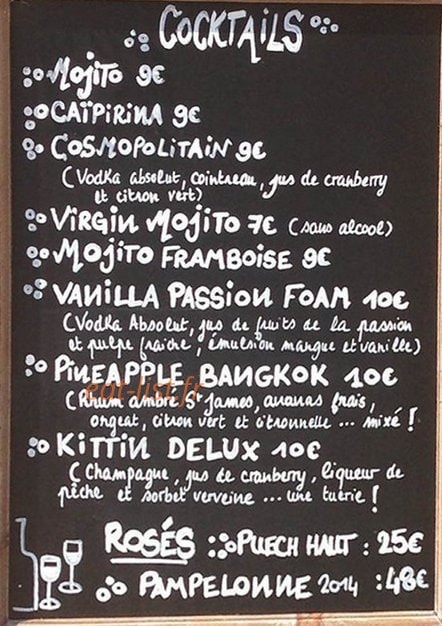 COCKTAILS
MOJITO 9€
CAÏPIRINA 9€
COSMOPOLITAIN 9€
(Vodka absolut, cointreau, jus de cranberry
et citron vert)
VIRGIN MOJITO 7€ (sans alcool)
MOJITO FRAMBOISE 9€
VANILLA PASSION FOAM 10€
(Vodka Absolut, jus de fruits de la passion
et pulpe fraîche, émulsion mangue et vanille)
PINEAPPLE BANGKOK 10€
eat-list.fr
(Rhum ambré St James, ananas frais,
orgeat, citron vert et citronnelle ... mixé !
KITTIN DELUX 10€
(Champagne, jus de cranberry, liqueur de
pêche et sorbet verveine ... une tuerie !
ROSÉS PUECH HAUT : 25€
PAMPELONNE 2014 : 48€